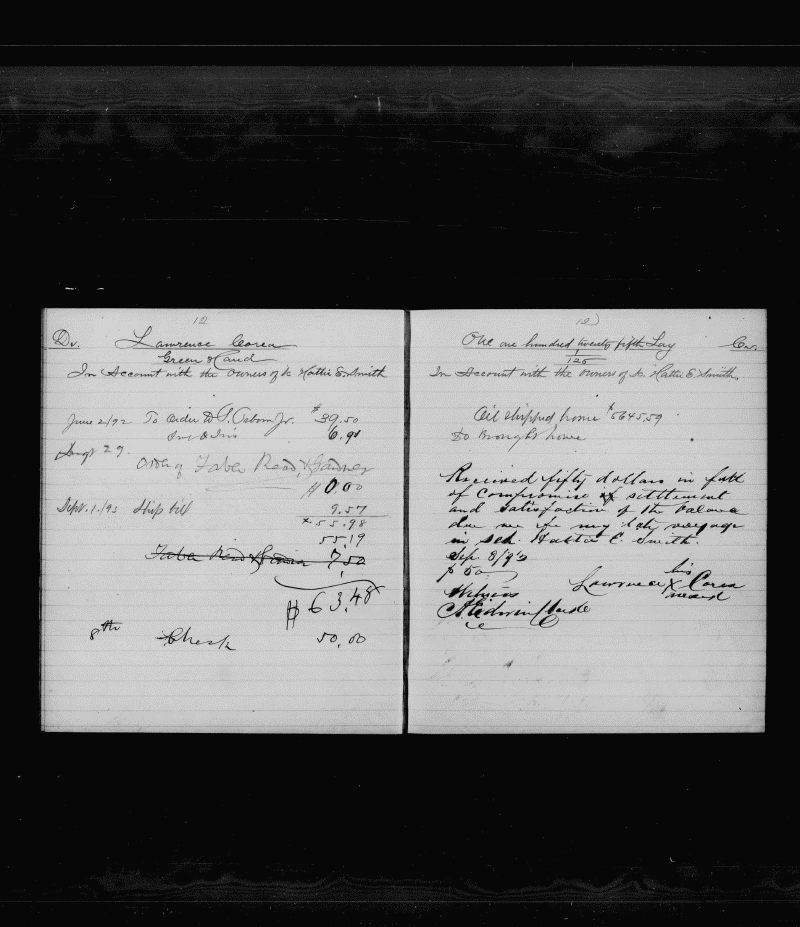 12
Dr. Lawrence Corea
Green Hand
In Account with the Owners of Sc Hattie E. Smith
June 2/92 To Order W. S. Osborn Jr. $39.50
Ins & Ins 6.91
Aug 29
Order of Taber Read, & Gardner
$10.00
Sept. 1/93 Ship bill 9.57
55.98
55.19
Taber Read & Gardner 7.50
$63.48
8th Check 50.00
12)
One one hundred twenty fifth Lay Cr.
1/125
In Account with the Owners of Sc Hattie E Smith.
Oil shipped home $5645.59
Do Brought home
Received fifty dollars in full
of compromise settlement
and satisfaction of the balance
due me for my late voyage
in sch. Hattie E. Smith.
Sep. 8/93
$50
Witness Lawrence his X mark Corea